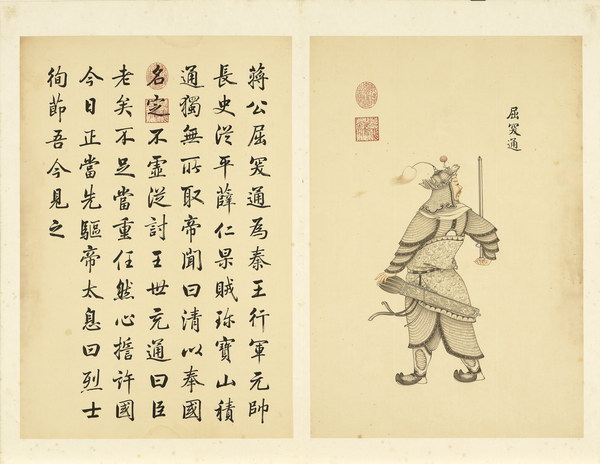 屈突通
蔣公屈突通為秦王行軍元帥
長史從平薛仁果賊珍寶山積
通獨無所取帝聞曰清以奉國
名定不虛從討王世充通曰臣
老矣不足當重任然心誓許國
今日正當先驅帝太息曰烈士
徇節吾今見之